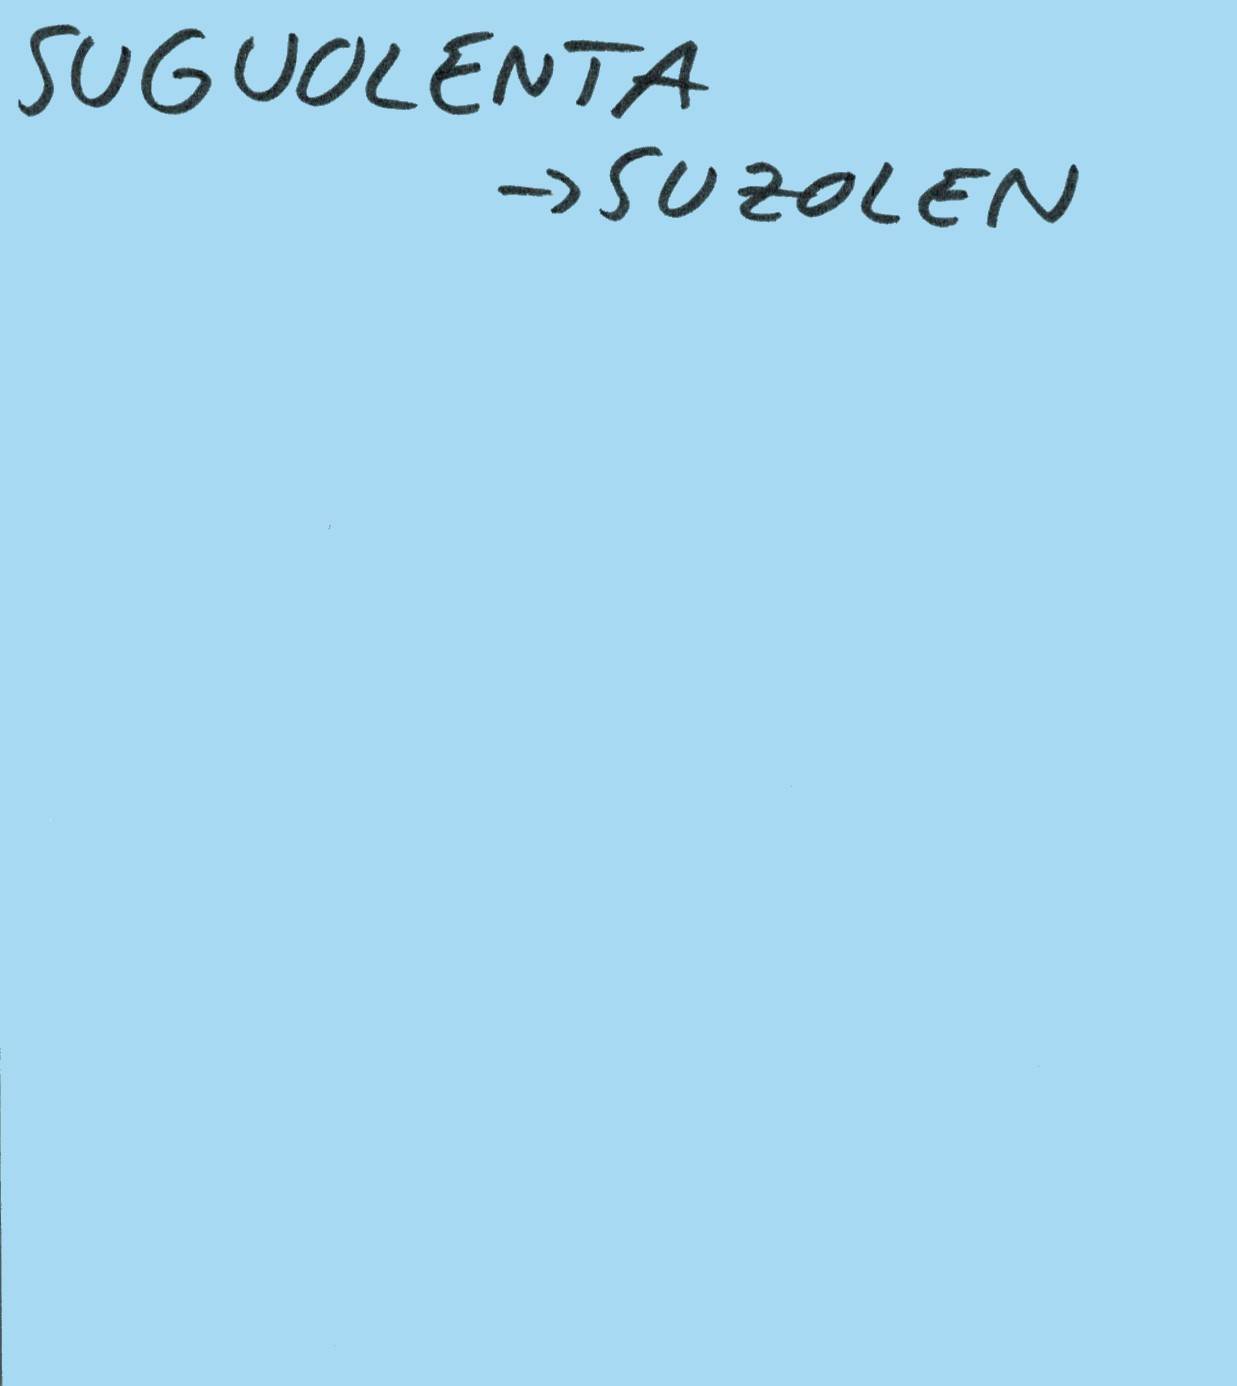 SUGUOLENTA
→SUZOLEN